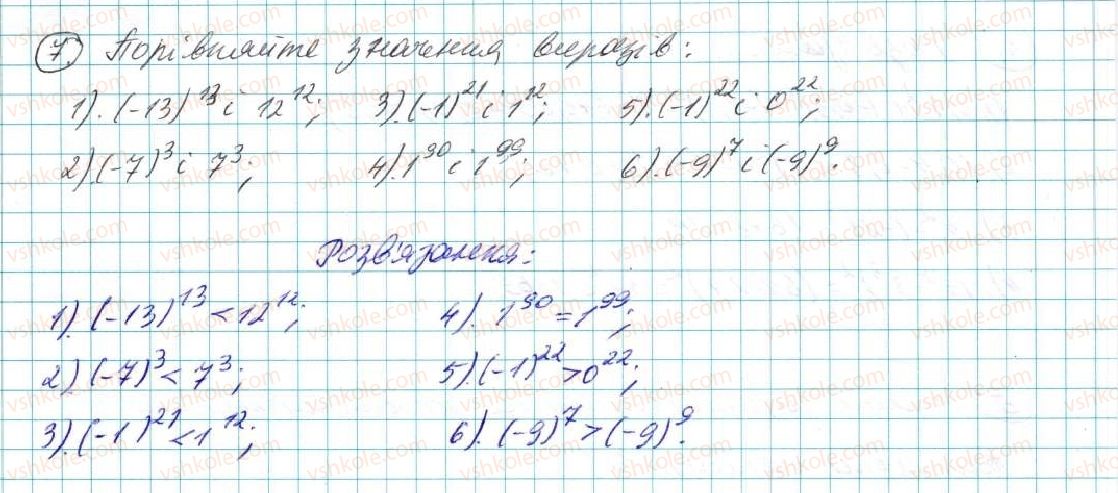 7. Порівняйте значення виразів:
1). (-13)^13 і 12^12; 3). (-1)^21 і 1^12; 5). (-1)^22 і 0^22;
2). (-7)^3 і 7^3; 4). 1^90 і 1^99; 6). (-9)^7 і (-9)^9.
Розв'язання:
1). (-13)^13 < 12^12; 4). 1^90 = 1^99;
2) (-7)^3 < 7^3; 5). (-1)^22 > 0^22;
3). (-1)^21 < 1^12; 6). (-9)^7 > (-9)^9.
vshkole.com